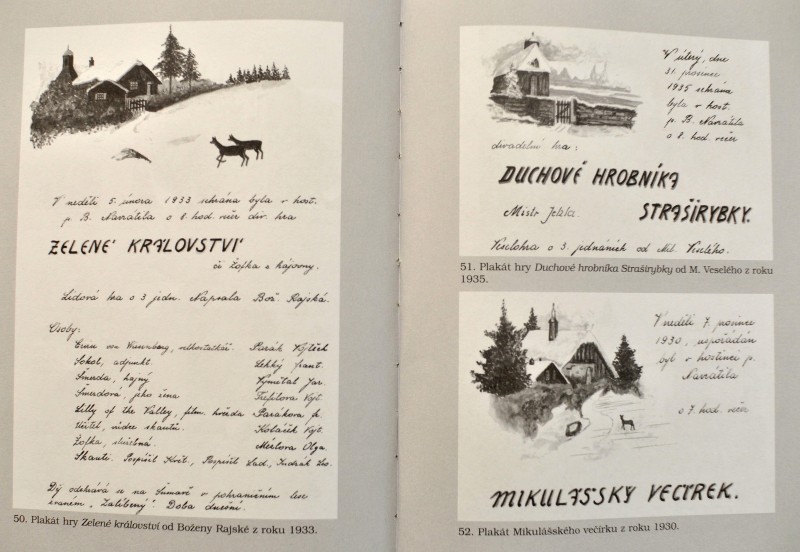 V neděli 5. února 1933 sehrána byla v host.
p. B. Navrátila o 8. hod. večer div. hra
ZELENÉ KRÁLOVSTVÍ
či Žofka z hájovny.
Lidová hra o 3 jedn. Napsala Bož. Rajská.
Osoby:
Ernu von Wiesenberg, velkostatkář. Pusák Vojtěch
Sokol, adjunkt. Lehký frant.
Šmerda, hajný Vymětal Jar.
Šmerdová, jeho žena Trefilova Vojt.
Lilly of the Valley, film. hvězda Parákova
Vůdce skautů. Koláček Vojt.
Žofka, služebná Mértova Olga
Skauti. Pospíšil Květ., Pospíšil Lad.,
Děj odehrává se na Šumavě v pohraničním lese
zvaném „Zalíbený“ Doba dnešní.
50. Plakát hry Zelené království od Boženy Rajské z roku 1933.
V úterý, dne
31. prosince
1935 sehrána
byla v host.
p. B. Navrátila
o 8. hod. večer
divadelní hra:
DUCHOVÉ HROBNÍKA
Mistr Jelita. STRAŠIRYBKY.
Veselohra o 3. jednáních od Mil. Veselého.
51. Plakát hry Duchové hrobníka Straširybky od M. Veselého z roku
1935.
V neděli 7. prosince
1930, uspořádán
byl v hostinci p.
Navrátila
o 7. hod. večer
MIKULÁŠSKÝ VEČÍREK.
52. Plakát Mikulášského večírku z roku 1930.